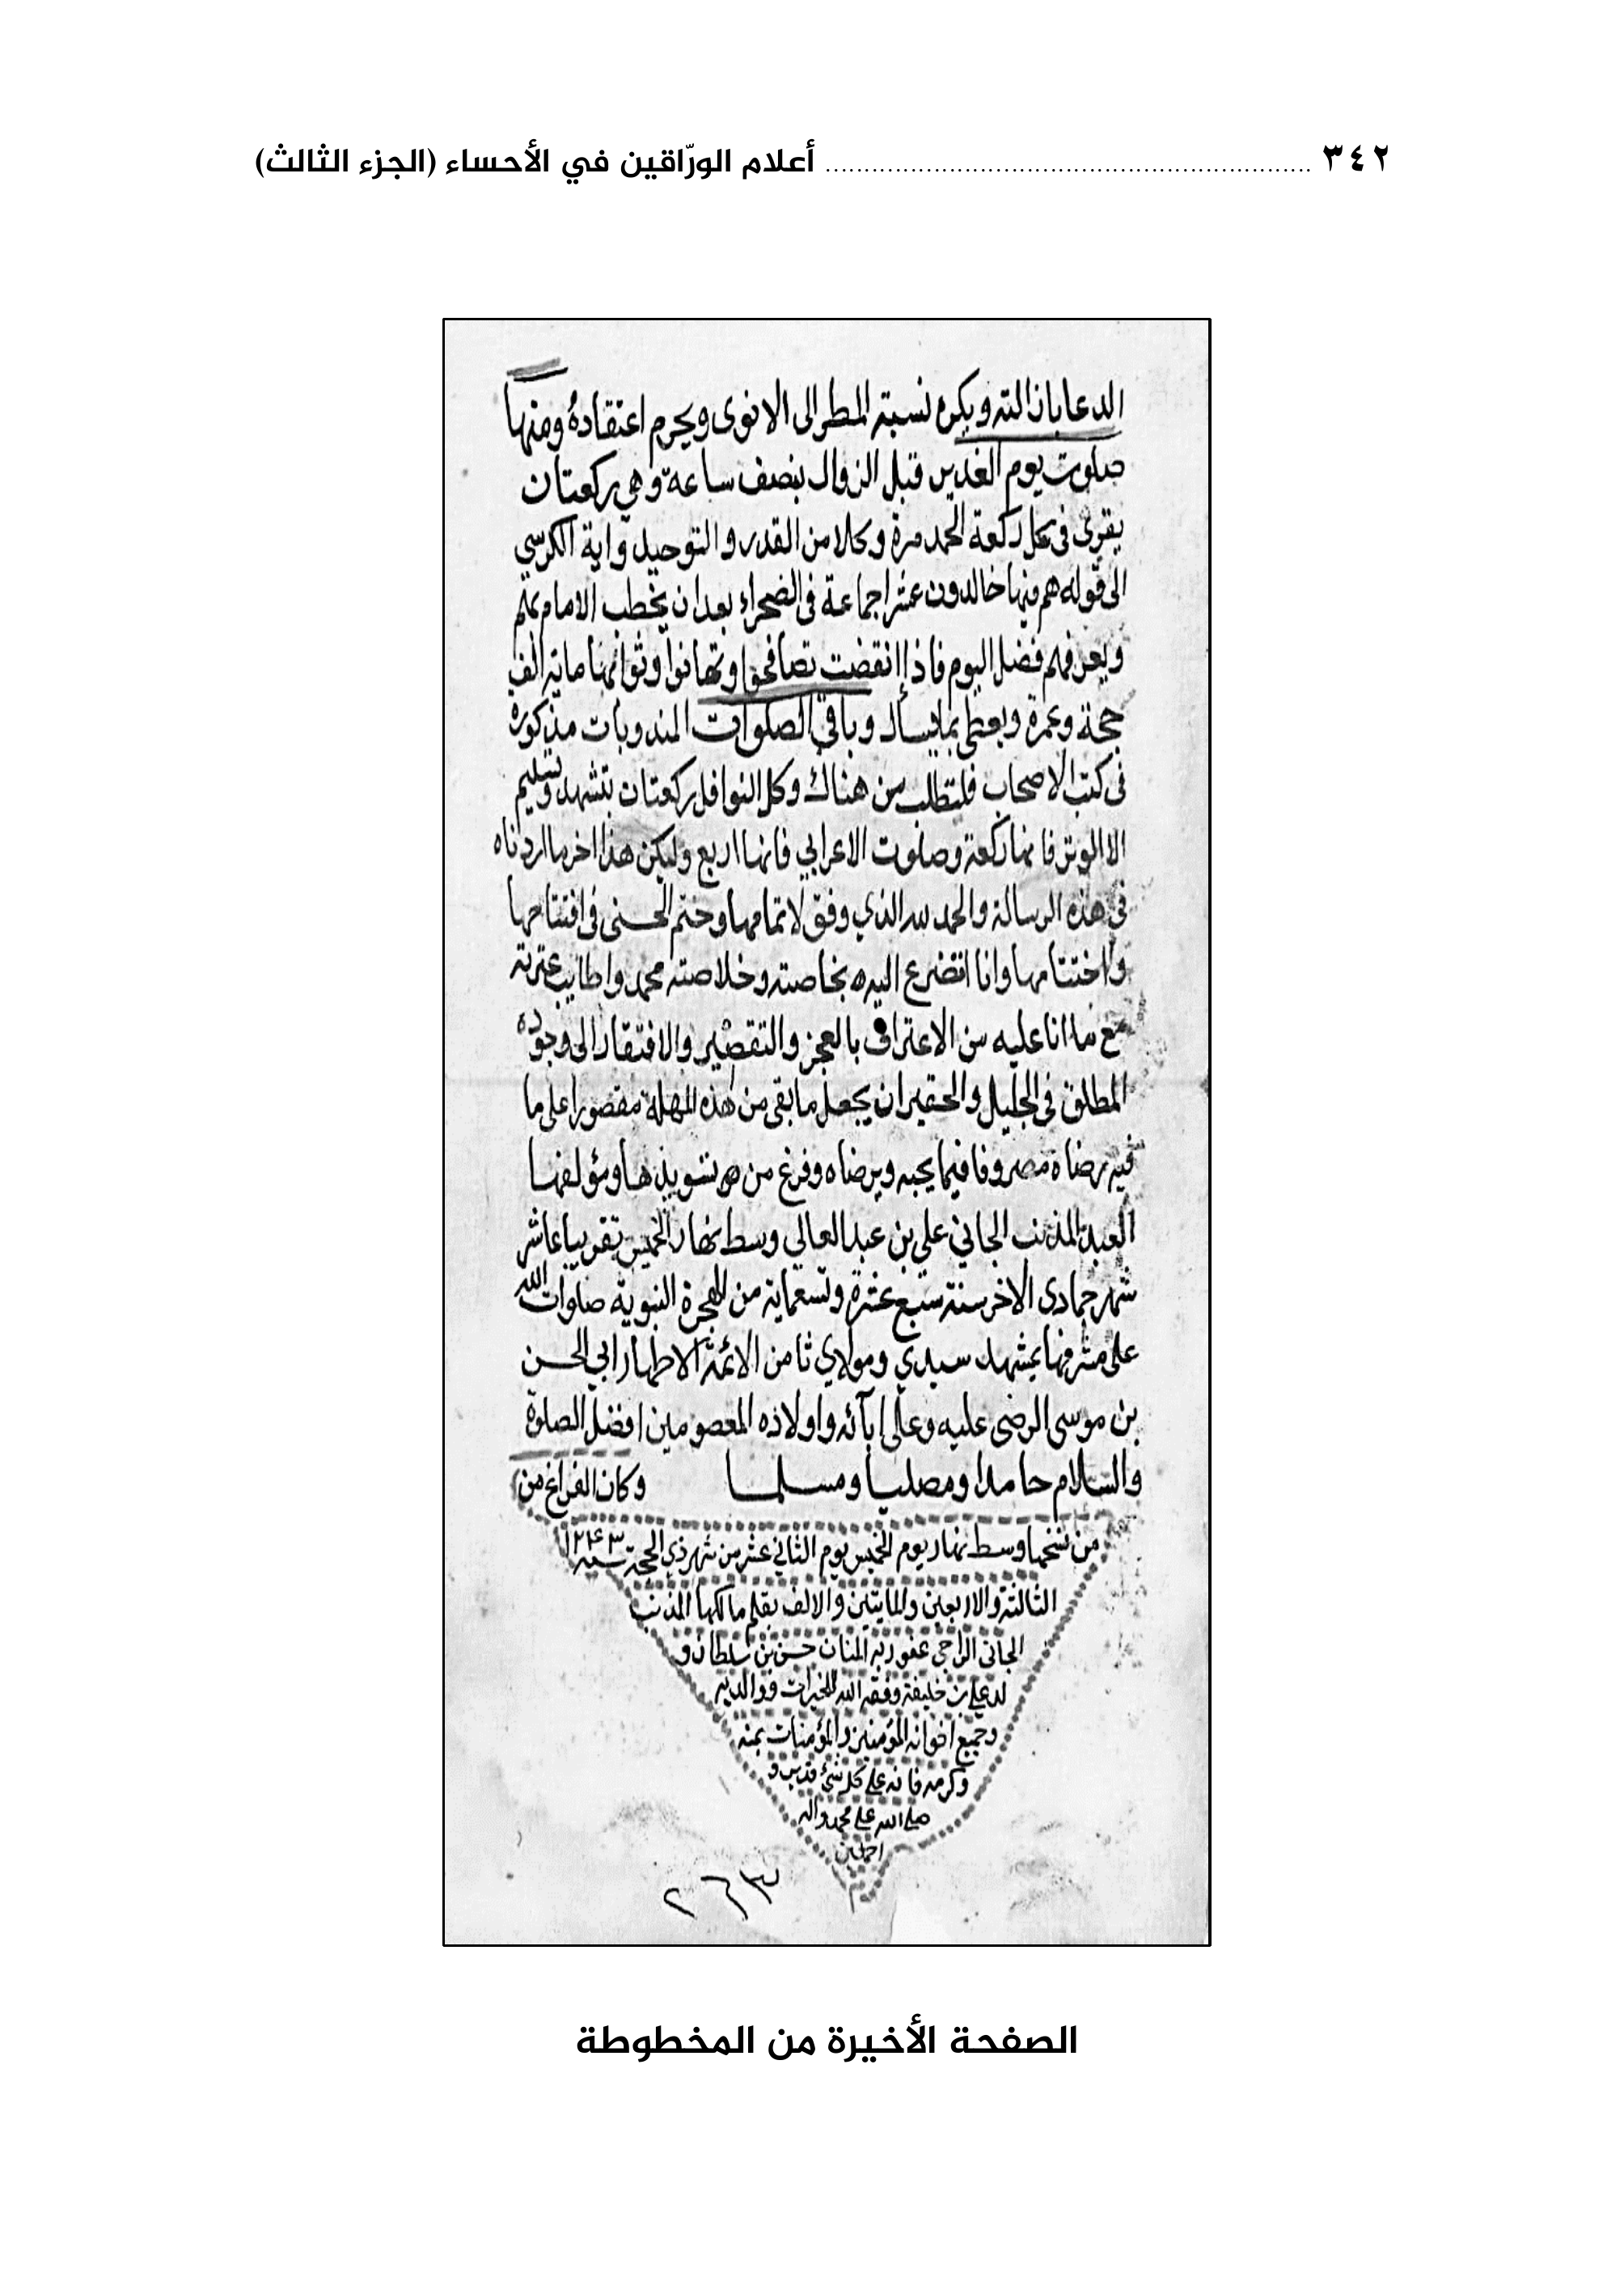 ٣٤٢ ............................................................ أعلام الورّاقين في الأحساء (الجزء الثالث)
الدعا باذالته ويكره نسبة المطر الى الانوى ويحرم اعتقاده ومنها
صلوت يوم الغدير قبل الزوال بنصف ساعة وهي ركعتان
يقرى في كل ركعة الحمد مرة وكلا من القدر والتوحيد واية الكرسي
الى قوله هم فيها خالدون عشرا جماعة في الصحراء بعد ان يخطب الامام بهم
ويعرفهم فضل اليوم فاذا انقضت تصافحوا وتهانوا وثوابها مائة الف
حجة وعمرة ويعطى ما يسال وباقي الصلوات المندوبات مذكورة
في كتب الاصحاب فلتطلب من هناك وكل النوافل ركعتان بتشهد وتسليم
الا الوتر فانها ركعة وصلوت الاعرابي فانها اربع وليكن هذا اخر ما اردناه
في هذه الرسالة والحمد لله الذي وفق لاتمامها وختم الحسنى في افتتاحها
واختتامها وانا اتضرع اليه بخاصته وخلاصته محمد واطايب عترته
مع ما انا عليه من الاعتراف بالعجز والتقصير والافتقار الى وجوده
المطلق في الجليل والحقير ان يجعل ما بقى من هذه المهلة مقصورا على ما
فيه رضاه مصروفا فيما يحبه ويرضاه وفرغ من تسويدها ومؤلفها
العبد المذنب الجاني علي بن عبد العالي وسط نهار الخميس تقريبا عاشر
شهر جمادى الاخر سنة سبع عشرة وتسعماية من الهجرة النبوية صلوات الله
على مشرفها بمشهد سيدي ومولاي ثامن الائمة الاطهار ابي الحسن
بن موسى الرضى عليه وعلى ابآئه واولاده المعصومين افضل الصلوة
والسلام حامدا ومصليا ومسلما وكان الفراغ من
من نسخها وسط نهار يوم الخميس يوم الثاني عشر من شهر ذي الحجة سنة ١٢٤٣
الثالثة والاربعين والمايتين والالف بقلم مالكها المذنب
الجاني الراجي عفو ربه المنان حسن بن سلطان و
لد علي بن خليفة وفقه الله للخيرات ووالديه
وجميع اخوانه المؤمنين والمؤمنات بمنه
وكرمه فانه على كل شئ قدير و
صلى الله على محمد واله
اجمعين
الصفحة الأخيرة من المخطوطة